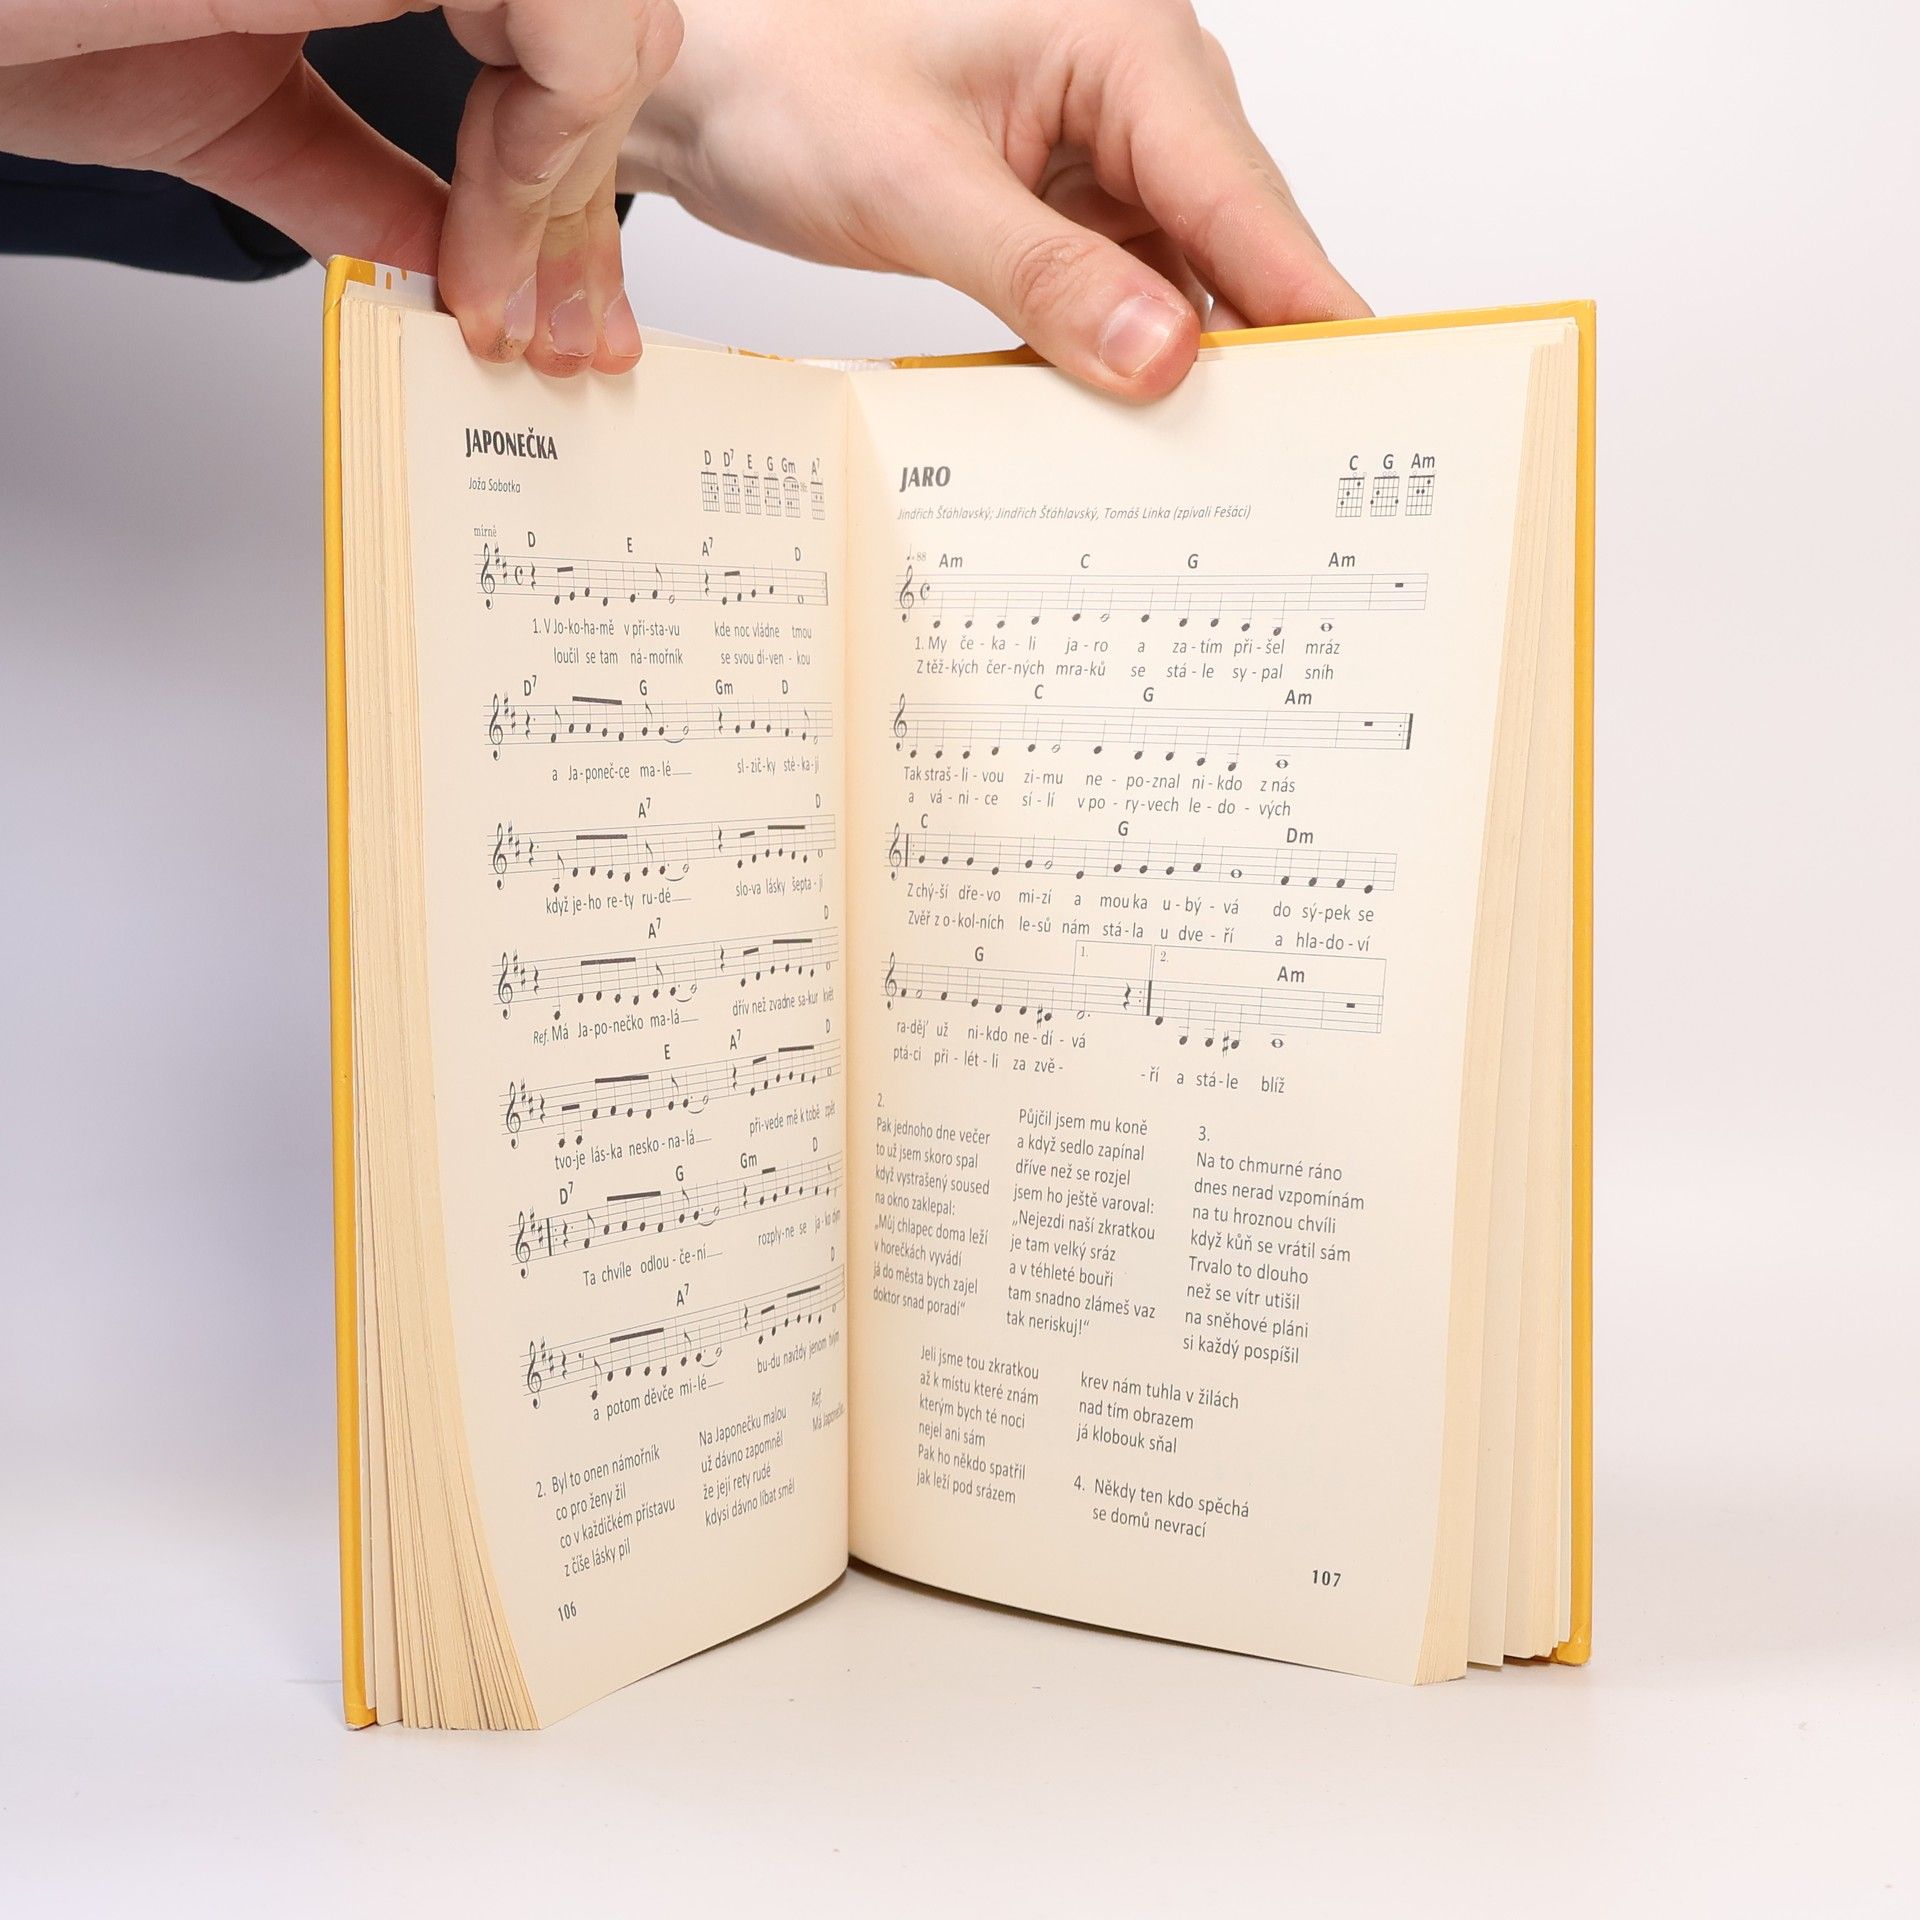 JAPONEČKA
Joža Sobotka
D D7 E G Gm A7
mírně
D E A7 D
1. V Jo-ko-ha-mě v pří-sta-vu kde noc vládne tmou
loučil se tam ná-mořník se svou dí-ven-kou
D7 G Gm D
a Ja-poneč-ce ma-lé sl-zič-ky sté-ka-jí
A7 D
když je-ho re-ty ru-dé slo-va lásky šepta-jí
A7 D
Ref. Má Ja-po-nečko ma-lá dřív než zvadne sa-kur květ
E A7 D
tvo-je lás-ka nesko-na-lá při-vede mě k tobě zpět
D7 G Gm D
Ta chvíle odlou-če-ní rozply-ne se ja-ko dým
A7 D
a potom děvče mi-lé bu-du navždy jenom tvým
2. Byl to onen námořník
co pro ženy žil
co v každičkém přístavu
z číše lásky pil
Na Japonečku malou
už dávno zapomněl
že její rety rudé
kdysi dávno líbat směl
Ref.
Má Japonečko...
106
JARO
Jindřich Šťáhlavský; Jindřich Šťáhlavský, Tomáš Linka (zpívali Fešáci)
C G Am
♩=88
Am C G Am
1. My če-ka-li ja-ro a za-tím při-šel mráz
Z těž-kých čer-ných mra-ků se stá-le sy-pal sníh
C G Am
Tak straš-li-vou zi-mu ne-po-znal ni-kdo z nás
a vá-ni-ce sí-lí v po-ry-vech le-do-vých
C G Dm
Z chý-ší dře-vo mi-zí a mou ka u-bý-vá do sý-pek se
Zvěř z o-kol-ních le-sů nám stá-la u dve-ří a hla-do-ví
G 1. 2. Am
ra-děj' už ni-kdo ne-dí-vá
ptá-ci při-lét-li za zvě- -ří a stá-le blíž
2.
Pak jednoho dne večer
to už jsem skoro spal
když vystrašený soused
na okno zaklepal:
„Můj chlapec doma leží
v horečkách vyvádí
já do města bych zajel
doktor snad poradí“
Půjčil jsem mu koně
a když sedlo zapínal
dříve než se rozjel
jsem ho ještě varoval:
„Nejezdi naší zkratkou
je tam velký sráz
a v téhleté bouři
tam snadno zlámeš vaz
tak neriskuj!“
3.
Na to chmurné ráno
dnes nerad vzpomínám
na tu hroznou chvíli
když kůň se vrátil sám
Trvalo to dlouho
než se vítr utišil
na sněhové pláni
si každý pospíšil
Jeli jsme tou zkratkou
až k místu které znám
kterým bych té noci
nejel ani sám
Pak ho někdo spatřil
jak leží pod srázem
krev nám tuhla v žilách
nad tím obrazem
já klobouk sňal
4. Někdy ten kdo spěchá
se domů nevrací
107